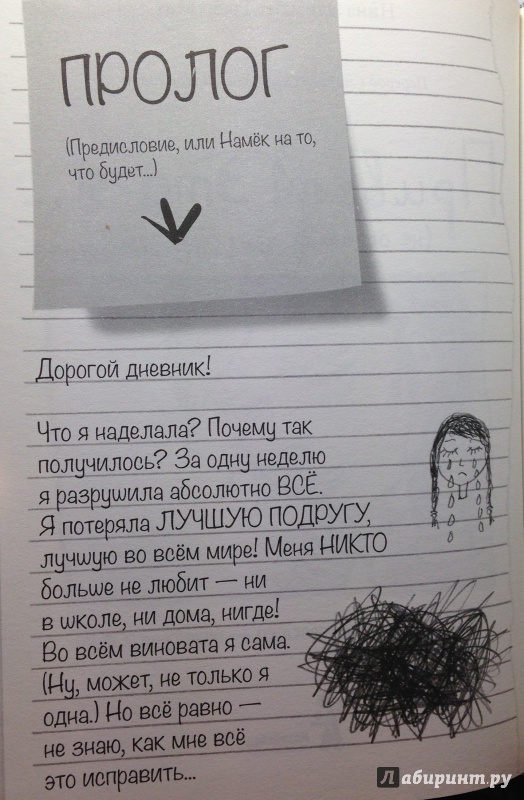 ПРОЛОГ
(Предисловие, или Намёк на то,
что будет...)
Дорогой дневник!
Что я наделала? Почему так
получилось? За одну неделю
я разрушила абсолютно ВСЁ.
Я потеряла ЛУЧШУЮ ПОДРУГУ,
лучшую во всём мире! Меня НИКТО
больше не любит — ни
в школе, ни дома, нигде!
Во всём виновата я сама.
(Ну, может, не только я
одна.) Но всё равно —
не знаю, как мне всё
это исправить...
Лабиринт.ру